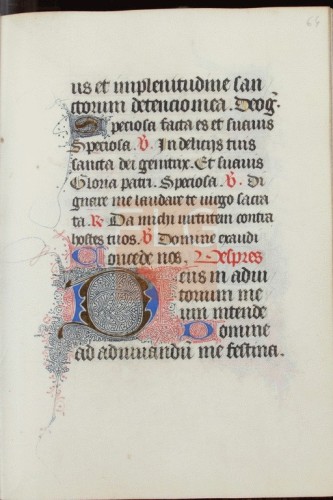 64
us et inplenitudine san
ctorum detencio mea. Deog.
Speciosa facta es et suavis
Speciosa. V. In delicijs tuis
sancta dei genitrix. Et suavis
Gloria patri. Speciosa. V. Di
gnare me laudare te virgo sacra
ta. R. Da michi virtutem contra
hostes tuos. V. Domine exaudi
Concede nos. Vespres
Deus in adiu
torium me
um intende
Domine
ad adiuvandu me festina.